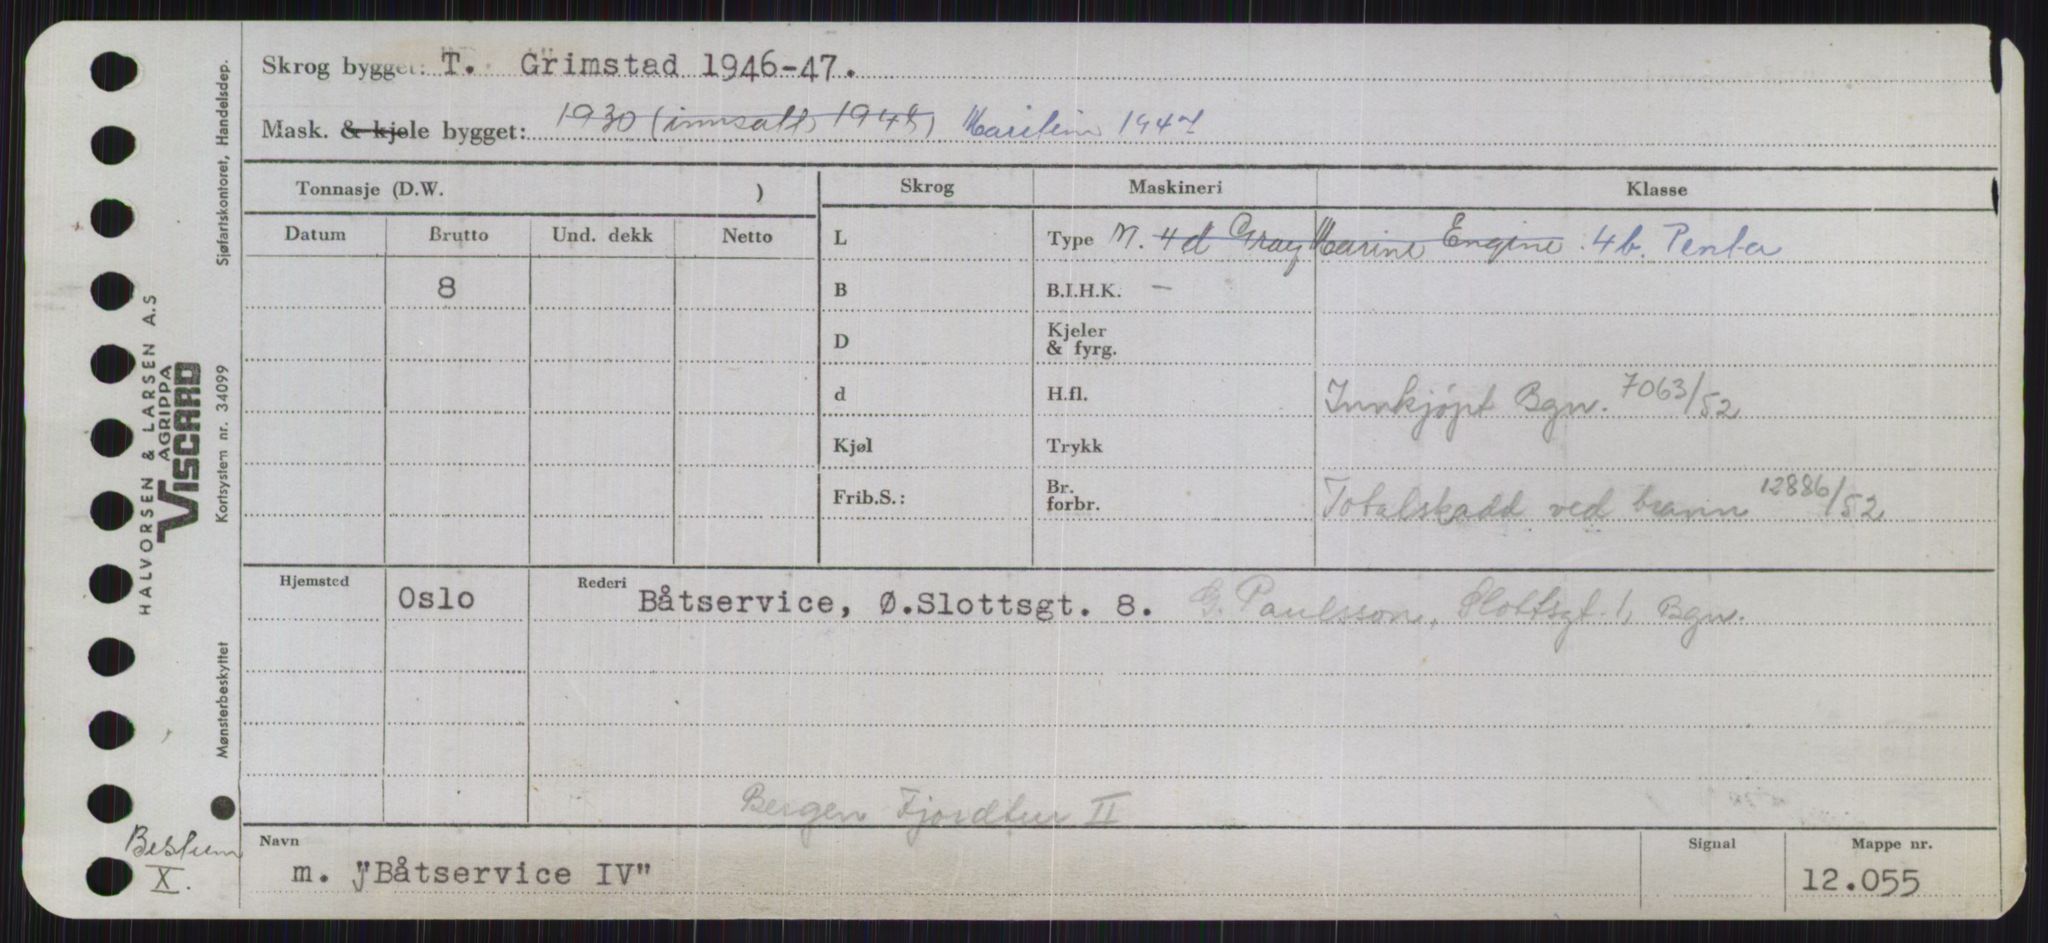 Skrog bygget: T. Grimstad 1946-47.
Mask. & kjele bygget: 1930 (innsatt 1948) Maritim 1947
Tonnasje (D.W. )
Skrog
Maskineri
Klasse
Datum
Brutto
Und. dekk
Netto
L
Type M. 4d Gray Marine Engine. 4b. Penta
8
B
B.I.H.K. –
D
Kjeler
& fyrg.
d
H.fl.
Innkjøpt Bgn. 7063/52
Kjøl
Trykk
Frib.S.:
Br.
forbr.
Totalskadd ved brann 12886/52
Hjemsted
Oslo
Rederi
Båtservice, Ø.Slottsgt. 8. G. Paulsson, Slottsgt. 1, Bgn.
Bergen Fjordtur II
Navn
m. "Båtservice IV"
Signal
Mappe nr.
12.055
X.
HALVORSEN & LARSEN A.S
AGRIPPA
VISCARD
Mønsterbeskyttet
Kortsystem nr. 34099
Sjøfartskontoret, Handelsdep.